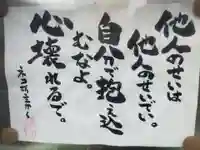 他人のせいは
他人のせいでい。
自分で抱え込
むなよ。
心壊れるで。